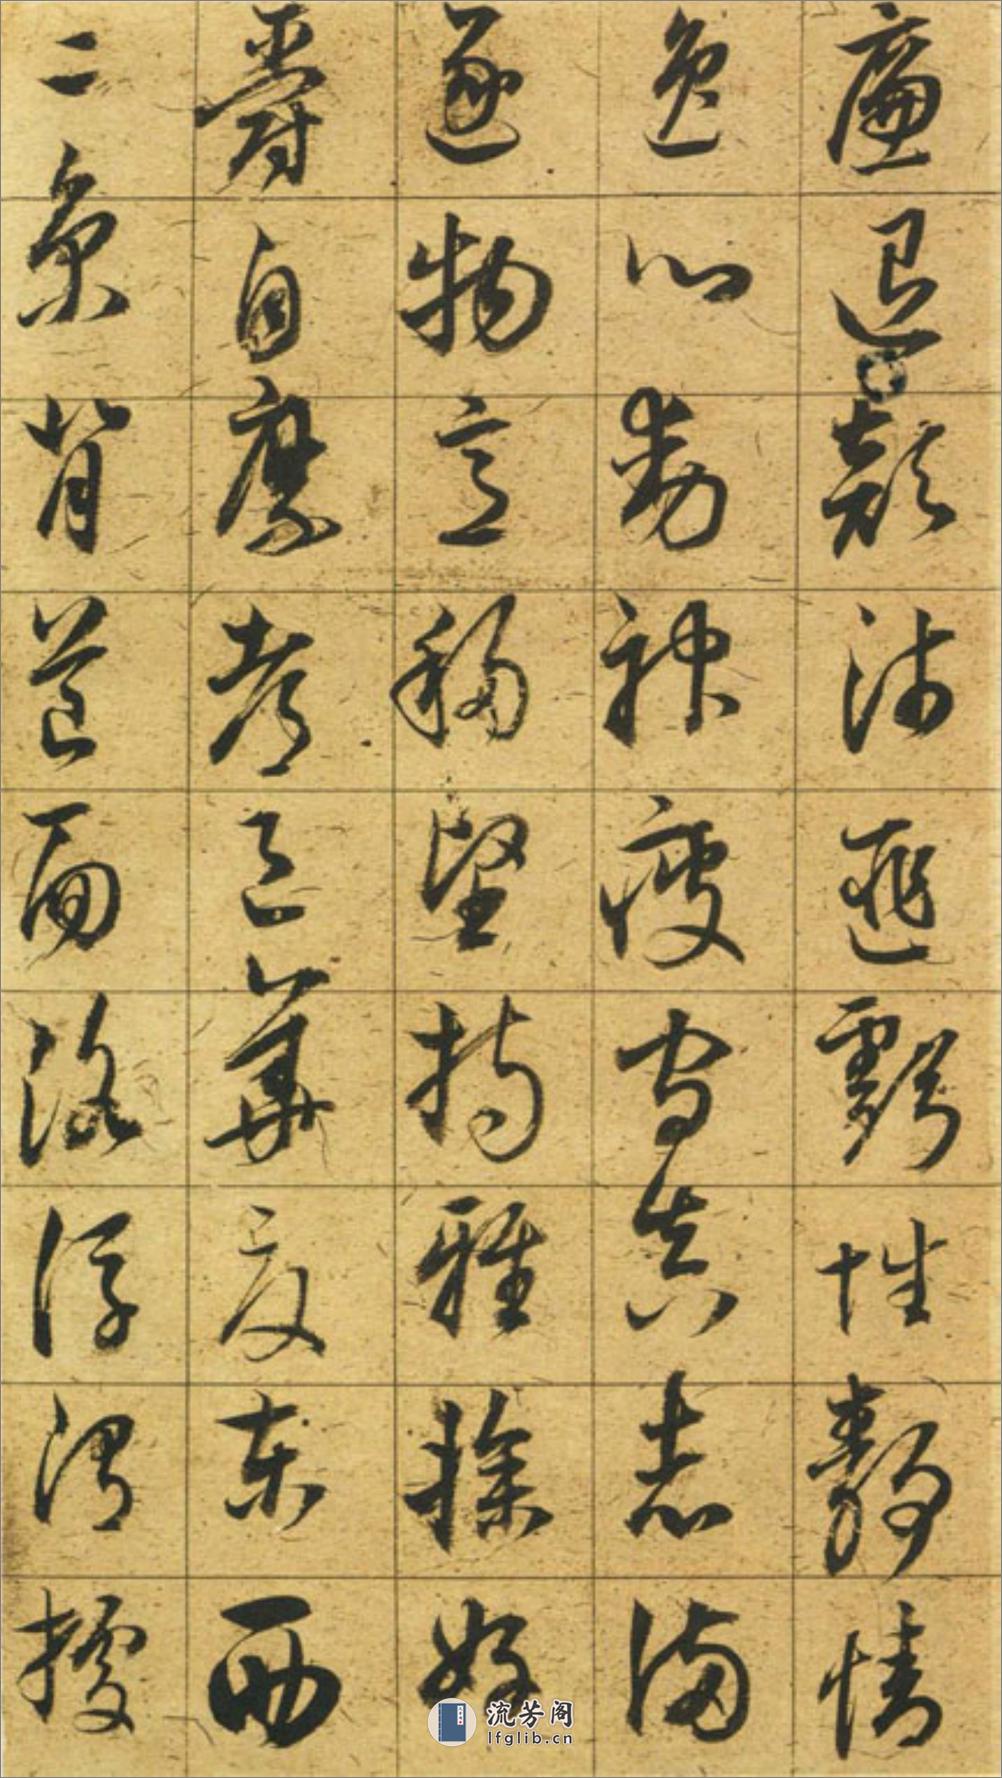 廉退顛沛匪虧性靜情
逸心動神疲守真志滿
逐物意移堅持雅操好
爵自縻都邑華夏東西
二京背芒面洛浮渭據
流芳阁
lfglib.cn